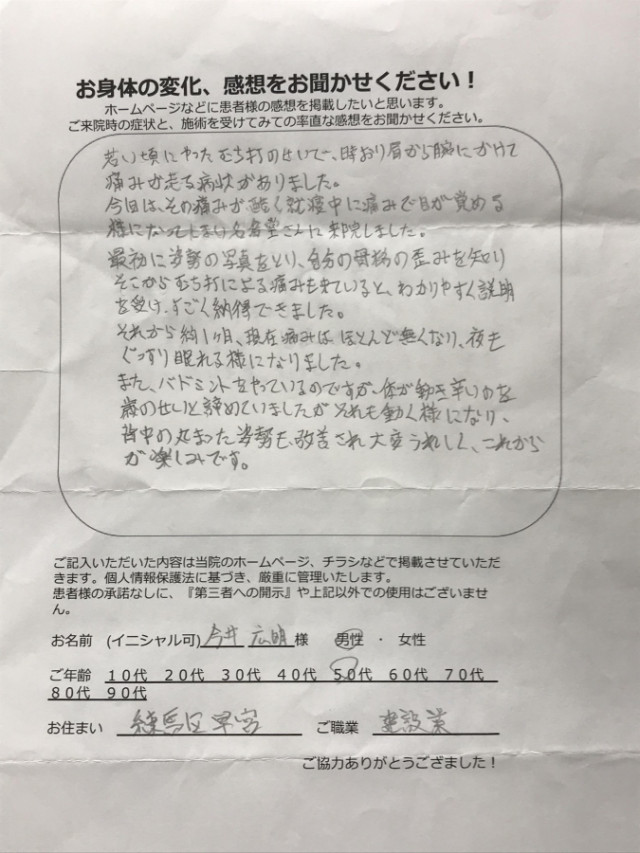 お身体の変化、感想をお聞かせください！
ホームページなどに患者様の感想を掲載したいと思います。
ご来院時の症状と、施術を受けてみての率直な感想をお聞かせください。
若い頃にやったむち打のせいで、時おり肩から腕にかけて
痛みが走る病状がありました。
今回は、その痛みが酷く就寝中に痛みで目が覚める
様になってしまい名倉堂さんに来院しました。
最初に姿勢の写真をとり、自分の骨格の歪みを知り
そこからむち打による痛みもきていると、わかりやすく説明
を受け、すごく納得できました。
それから約1ヶ月、現在痛みはほとんど無くなり、夜も
ぐっすり眠れる様になりました。
また、バドミントをやっているのですが、体が動き辛いのを
歳のせいと諦めていましたがそれも動く様になり、
背中の丸まった姿勢も、改善され大変うれしく、これから
が楽しみです。
ご記入いただいた内容は当院のホームページ、チラシなどで掲載させていただ
きます。個人情報保護法に基づき、厳重に管理いたします。
患者様の承諾なしに、『第三者への開示』や上記以外での使用はございませ
ん。
お名前 (イニシャル可) 今井 広明 様 男性 ・ 女性
ご年齢 １０代 ２０代 ３０代 ４０代 ５０代 ６０代 ７０代
８０代 ９０代
お住まい 練馬区早宮 ご職業 建設業
ご協力ありがとうござました！